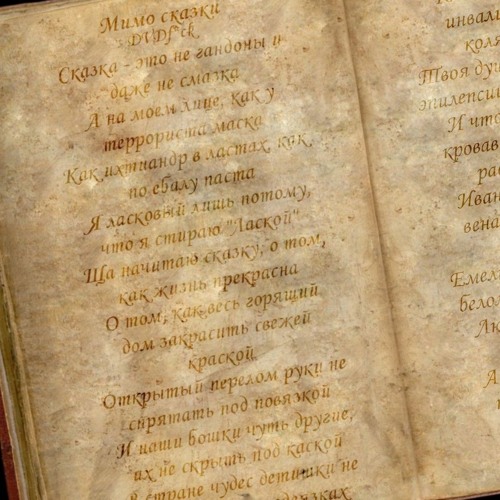 Мимо сказки
DVDf*ck
Сказка - это не гандоны и
даже не смазка
А на моем лице, как у
террориста маска
Как ихтиандр в ластах, как
по ебалу паста
Я ласковый лишь потому,
что я стираю "Лаской"
Ща начитаю сказку, о том,
как жизнь прекрасна
О том, как весь горящий
дом закрасить свежей
краской
Открытый перелом руки не
спрятать под повязкой
И наши бошки чуть другие,
их не скрыть под каской
В стране чудес детишки не
инвали
коля
Твоя душ
эпилепси
И что
кровав
ра
Иван
вена
Емел
бело
А